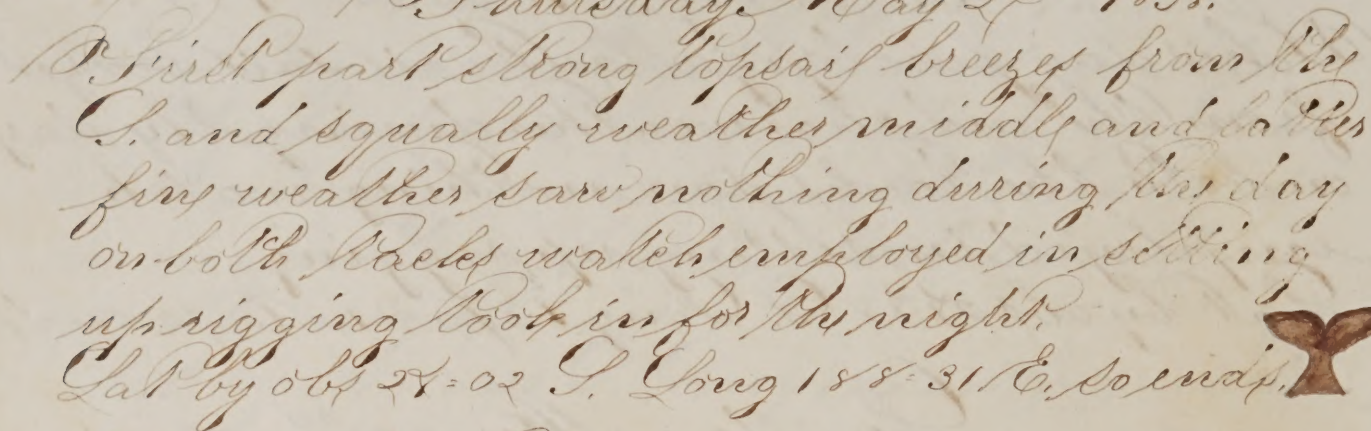 Thursday May
First part strong topsail breezes from the
S. and squally weather middle and latter
fine weather saw nothing during the day
on both tacks watch employed in setting
up rigging took in for the night.
Lat by obs 27=02 S. Long 188=31 E. so ends.